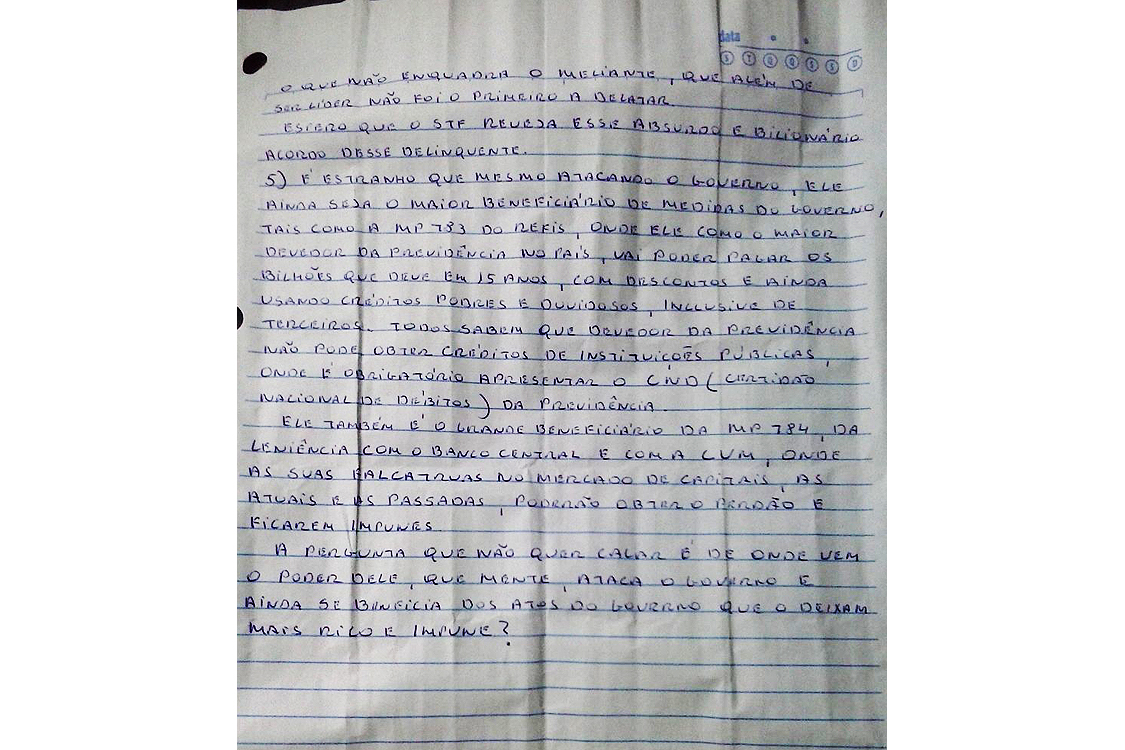 data
S T Q Q S S D
O QUE NÃO ENQUADRA O MELIANTE, QUE ALÉM DE
SER LÍDER NÃO FOI O PRIMEIRO A DELATAR.
ESPERO QUE O STF REVEJA ESSE ABSURDO E BILIONÁRIO
ACORDO DESSE DELINQUENTE.
5) É ESTRANHO QUE MESMO ATACANDO O GOVERNO, ELE
AINDA SEJA O MAIOR BENEFICIÁRIO DE MEDIDAS DO GOVERNO,
TAIS COMO A MP 783 DO REFIS, ONDE ELE COMO O MAIOR
DEVEDOR DA PREVIDÊNCIA NO PAÍS, VAI PODER PAGAR OS
BILHÕES QUE DEVE EM 15 ANOS, COM DESCONTOS E AINDA
USANDO CRÉDITOS PODRES E DUVIDOSOS, INCLUSIVE DE
TERCEIROS. TODOS SABEM QUE DEVEDOR DA PREVIDÊNCIA
NÃO PODE OBTER CRÉDITOS DE INSTITUIÇÕES PÚBLICAS,
ONDE É OBRIGATÓRIO APRESENTAR O CND (CERTIDÃO
NACIONAL DE DÉBITOS) DA PREVIDÊNCIA.
ELE TAMBÉM É O GRANDE BENEFICIÁRIO DA MP 784, DA
LENIÊNCIA COM O BANCO CENTRAL E COM A CVM, ONDE
AS SUAS FALCATRUAS NO MERCADO DE CAPITAIS, AS
ATUAIS E AS PASSADAS, PODERÃO OBTER O PERDÃO E
FICAREM IMPUNES.
A PERGUNTA QUE NÃO QUER CALAR É DE ONDE VEM
O PODER DELE, QUE MENTE, ATACA O GOVERNO E
AINDA SE BENEFICIA DOS ATOS DO GOVERNO QUE O DEIXAM
MAIS RICO E IMPUNE?